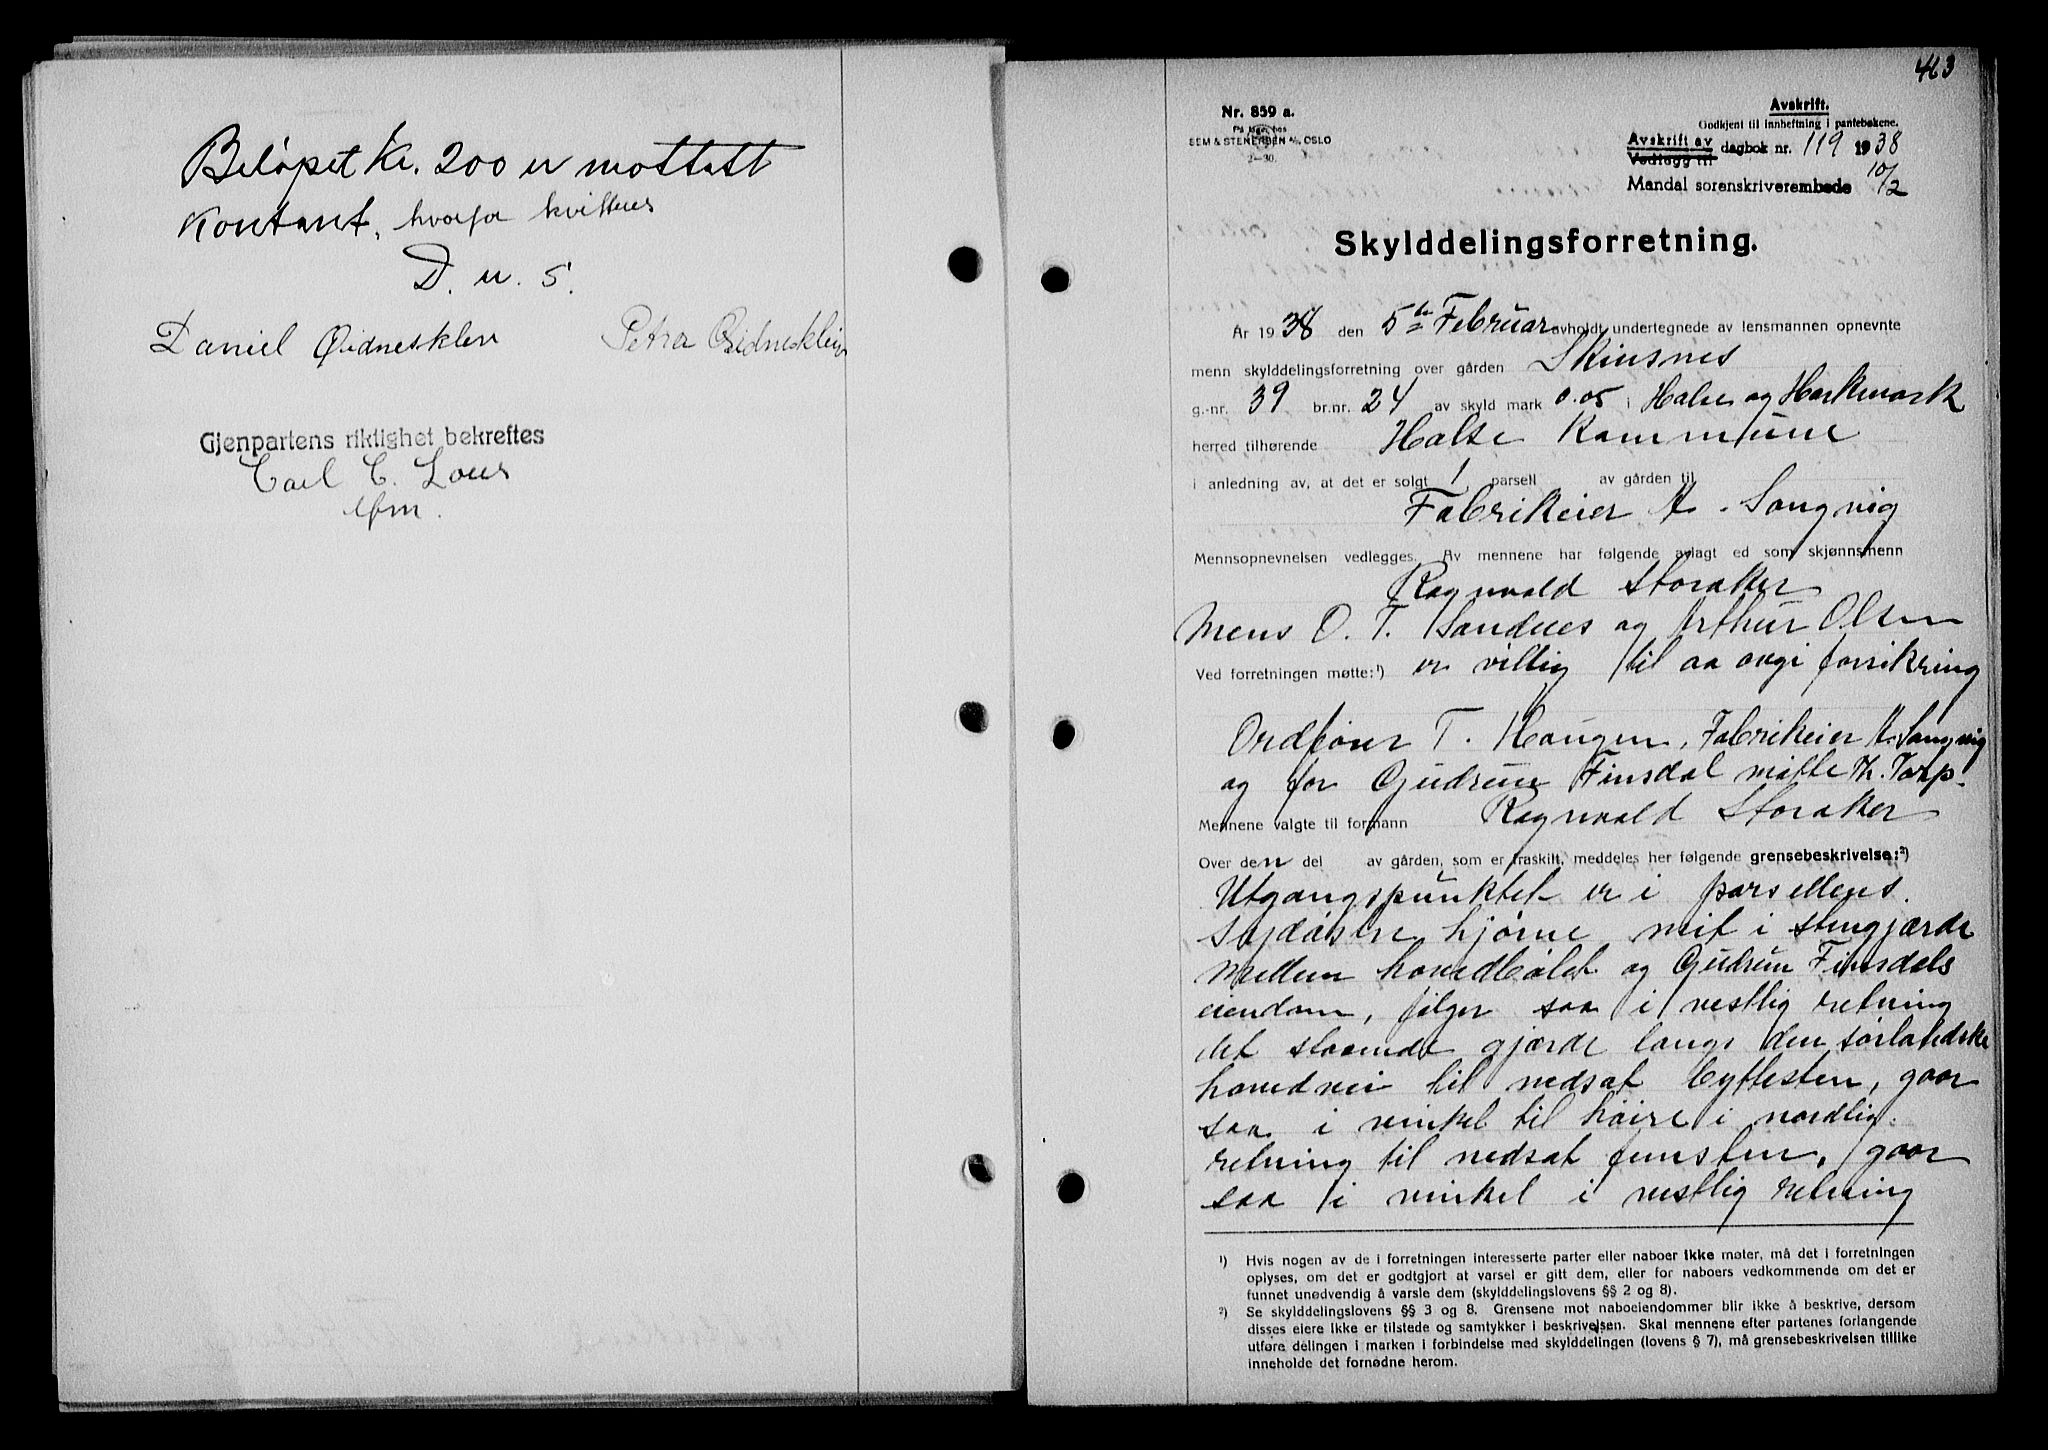 Beløpet Kr. 200 er mottatt
Kontant, hvorfor kvitteres
D. u. S.
Daniel Øidnesklev Petra Øidneskleiv
Gjenpartens riktighet bekreftes
Carl C. Lous
lfm.
463
Nr. 859 a.
På lager hos
SEM & STENERSEN A/S, OSLO
2–30.
Avskrift.
Godkjent til innheftning i pantebøkene.
Avskrift av
Vedlagg til dagbok nr. 119 1938
Mandal sorenskriverembede 10/2
Skylddelingsforretning.
År 1938 den 5te Februar avholdt undertegnede av lensmannen opnevnte
menn skylddelingsforretning over gården Skinsnes
g.-nr. 39 br.nr. 24 av skyld mark 0.05 i Halse og Harkmark
herred tilhørende Halse Kommune
i anledning av, at det er solgt 1 parsell av gården til
Fabrikeier A. Sangvig
Mennsopnevnelsen vedlegges. Av mennene har følgende avlagt ed som skjønnsmenn
Ragnvald Storaker
Mens O. T. Sandnes og Arthur Olsen
er villig til aa avgi forsikring
Ved forretningen møtte:¹)
Ordfører T. Haugen, Fabrikeier A. Sangvig
og for Gudrun Finsdal møtte Th. Torp.
Mennene valgte til formann Ragnvald Storaker
Over den del av gården, som er fraskilt, meddeles her følgende grensebeskrivelse:²)
Utgangspunktet er i parsellens
sydøstre hjørne mit i stengjærde
mellem hovedbølet og Gudrun Finsdals
eiendom, følger saa i vestlig retning
det staaende gjærde langs den sørlandske
hovedvei til nedsat byttesten, gaar
saa i vinkel til høire i nordlig
retning til nedsat stein, gaar
saa i vinkel i vestlig retning
¹) Hvis nogen av de i forretningen interesserte parter eller naboer ikke møter, må det i forretningen
oplyses, om det er godtgjort at varsel er gitt dem, eller for naboers vedkommende om det er
funnet unødvendig å varsle dem (skylddelingslovens §§ 2 og 8).
²) Se skylddelingslovens §§ 3 og 8. Grensene mot naboeiendommer blir ikke å beskrive, dersom
disses eiere ikke er tilstede og samtykker i beskrivelsen. Skal mennene efter partenes forlangende
utføre delingen i marken i forbindelse med skylddelingen (lovens § 7), må grensebeskrivelsen tillike
inneholde det fornødne herom.